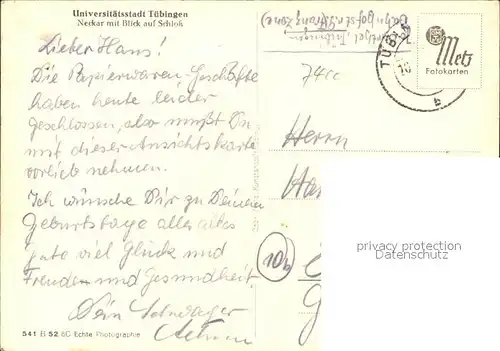 Universitätsstadt Tübingen
Neckar mit Blick auf Schloß
Lieber Hans!
Die Papierwaren-Geschäfte
haben heute leider
geschlossen, also mußt Du
mit dieser Ansichtskarte
vorlieb nehmen.
Ich wünsche Dir zu Deinem
Geburtstage alles alles
gute viel Glück und
Freude und Gesundheit
Dein Schwager
541 B 52 6C Echte Photographie
Tübingen
74cc
TÜB
10
b
Metz
Fotokarten
Herrn
10b
privacy protection
Datenschutz